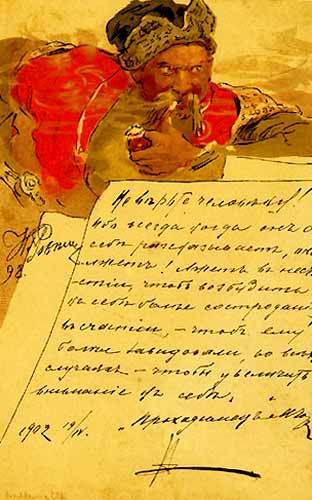 Не вѣрьте человѣку!
Ибо всегда когда онъ о
себѣ разсказываетъ, он
лжетъ! Лжетъ въ нес
частіи, чтобъ возбудить
къ себѣ болѣе сострадан
въ счастіи, – чтобъ ему
болѣе завидовали, во вс
случаяхъ – чтобы увеличить
вниманіе къ себѣ.
И Репин
98.
1902 19/IV.
"Проходимецъ"